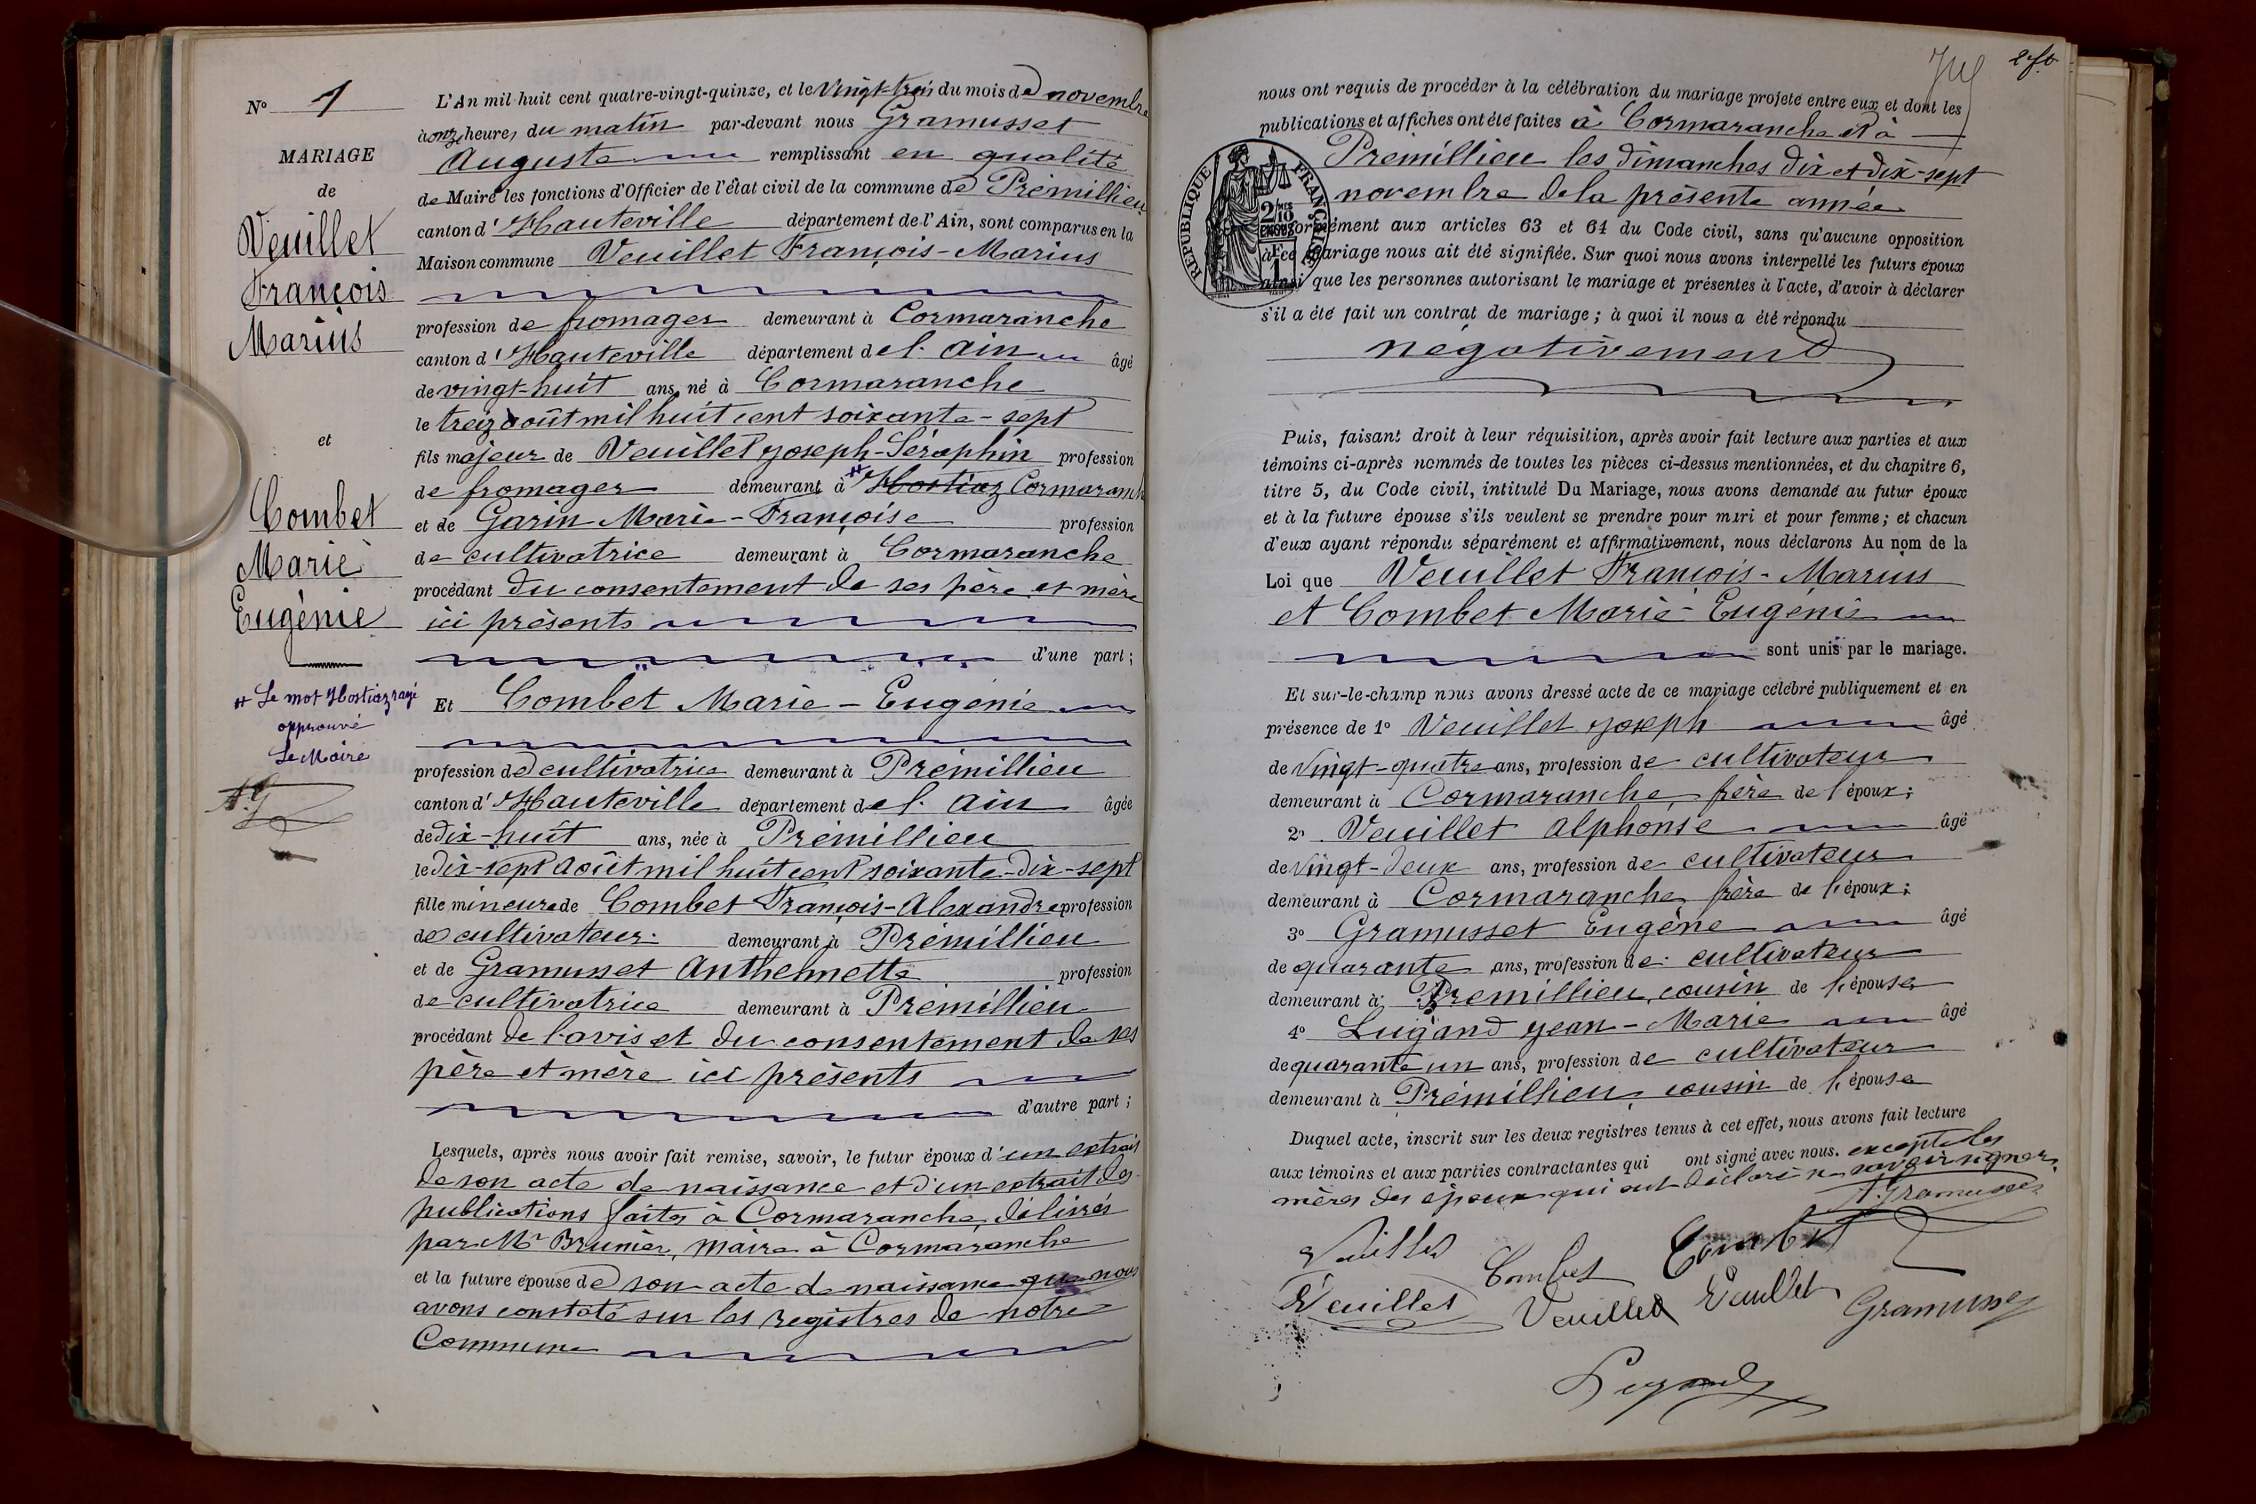 N° 1
MARIAGE
de
Veuillet
François
Marius
et
Combet
Marie
Eugénie
# Le mot Hostiaz rayé
approuvé
Le Maire
A.G
L'An mil huit cent quatre-vingt-quinze, et le Vingt-trois du mois de novembre
à onze heures du matin par-devant nous Gramusset
Auguste remplissant en qualité
de Maire les fonctions d'Officier de l'état civil de la commune de Prémillieu
canton d'Hauteville département de l'Ain, sont comparus en la
Maison commune Veuillet François-Marius
profession de fromager demeurant à Cormaranche
canton d'Hauteville département de l'Ain âgé
de vingt-huit ans, né à Cormaranche
le treize août mil huit cent soixante-sept
fils majeur de Veuillet Joseph-Séraphin profession
de fromager demeurant à # Hostiaz Cormaranche
et de Garin Marie-Françoise profession
de cultivatrice demeurant à Cormaranche
procédant du consentement de ses père et mère
ici présents
d'une part;
Et Combet Marie-Eugénie
profession de cultivatrice demeurant à Prémillieu
canton d'Hauteville département de l'Ain âgée
de dix-huit ans, née à Prémillieu
le dix-sept août mil huit cent soixante-dix-sept
fille mineure de Combet François-Alexandre profession
de cultivateur demeurant à Prémillieu
et de Gramusset Anthelmette profession
de cultivatrice demeurant à Prémillieu
procédant de l'avis et du consentement de ses
père et mère ici présents
d'autre part;
Lesquels, après nous avoir fait remise, savoir, le futur époux d'un extrait
de son acte de naissance et d'un extrait des
publications faites à Cormaranche, délivrés
par Mr Brunier, Maire à Cormaranche
et la future épouse de son acte de naissance que nous
avons constaté sur les registres de notre
Commune
2 fo
nous ont requis de procéder à la célébration du mariage projeté entre eux et dont les
publications et affiches ont été faites à Cormaranche et à
Prémillieu les dimanches dix et dix-sept
novembre de la présente année
RÉPUBLIQUE FRANÇAISE
2/10
EN SUS
conformément aux articles 63 et 64 du Code civil, sans qu'aucune opposition
à ce mariage nous ait été signifiée. Sur quoi nous avons interpellé les futurs époux
ainsi que les personnes autorisant le mariage et présentes à l'acte, d'avoir à déclarer
s'il a été fait un contrat de mariage; à quoi il nous a été répondu
négativement
Puis, faisant droit à leur réquisition, après avoir fait lecture aux parties et aux
témoins ci-après nommés de toutes les pièces ci-dessus mentionnées, et du chapitre 6,
titre 5, du Code civil, intitulé Du Mariage, nous avons demandé au futur époux
et à la future épouse s'ils veulent se prendre pour mari et pour femme; et chacun
d'eux ayant répondu séparément et affirmativement, nous déclarons Au nom de la
Loi que Veuillet François-Marius
et Combet Marie-Eugénie
sont unis par le mariage.
Et sur-le-champ nous avons dressé acte de ce mariage célébré publiquement et en
présence de 1° Veuillet Joseph âgé
de vingt-quatre ans, profession de cultivateur
demeurant à Cormaranche, frère de l'époux;
2° Veuillet Alphonse âgé
de vingt-deux ans, profession de cultivateur
demeurant à Cormaranche, frère de l'époux;
3° Gramusset Eugène âgé
de quarante ans, profession de cultivateur
demeurant à Prémillieu, cousin de l'épouse
4° Lugand Jean-Marie âgé
de quarante un ans, profession de cultivateur
demeurant à Prémillieu, cousin de l'épouse
Duquel acte, inscrit sur les deux registres tenus à cet effet, nous avons fait lecture
aux témoins et aux parties contractantes qui ont signé avec nous. excepté les
mères des époux qui ont déclaré ne savoir signer.
A. Gramusset
Veuillet
Combet
Combet
Veuillet
Veuillet
Veuillet
Gramusset
Lugand